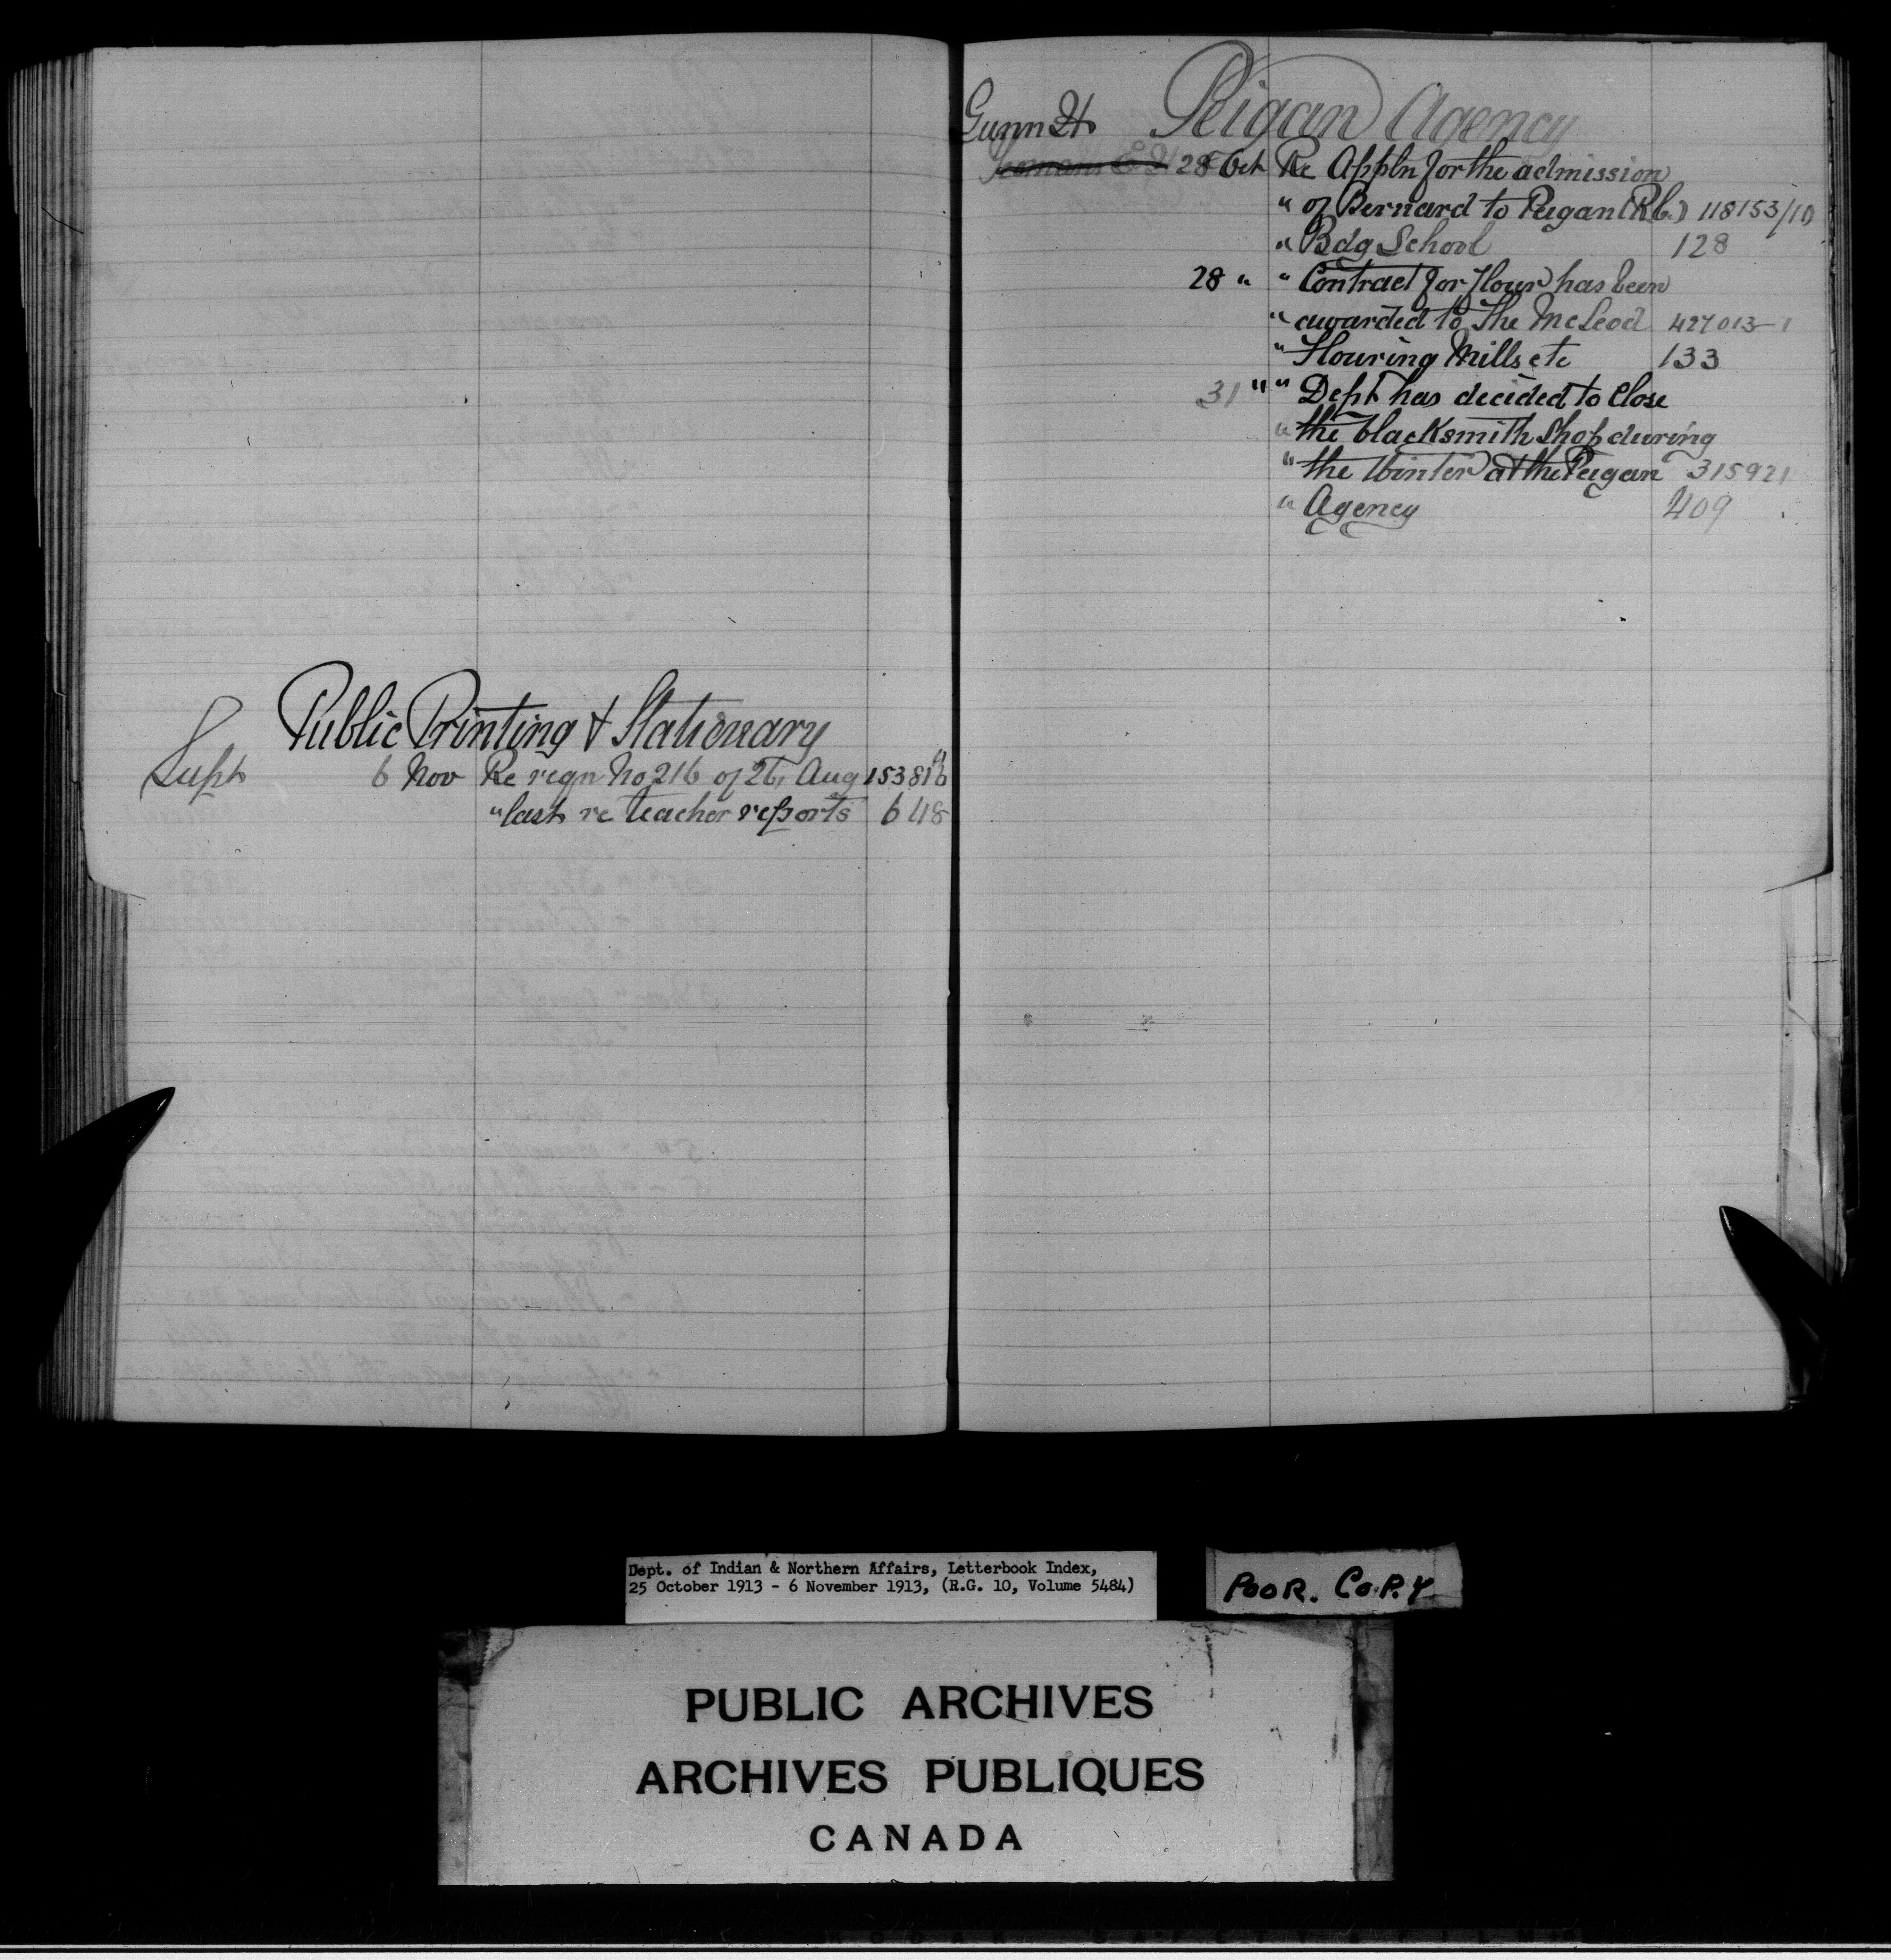 Public Printing & Stationary
Supt 6 Nov Re reqn No 216 of 26, Aug 153816
" last re teacher reports 648
Gunn H Peigan Agency
Yeomans E H 28 Oct Re Appln for the admission
" of Bernard to Peigan (R.C.) 118153/10
" Bdg School 128
28 " " Contract for flour has been
" awarded to The McLeod 427013-1
" Flouring Mills etc 133
31 " " Dept has decided to close
" the blacksmith shop during
" the winter at the Peigan 315921
" Agency 409
Dept. of Indian & Northern Affairs, Letterbook Index,
25 October 1913 - 6 November 1913, (R.G. 10, Volume 5484)
POOR. COPY
PUBLIC ARCHIVES
ARCHIVES PUBLIQUES
CANADA